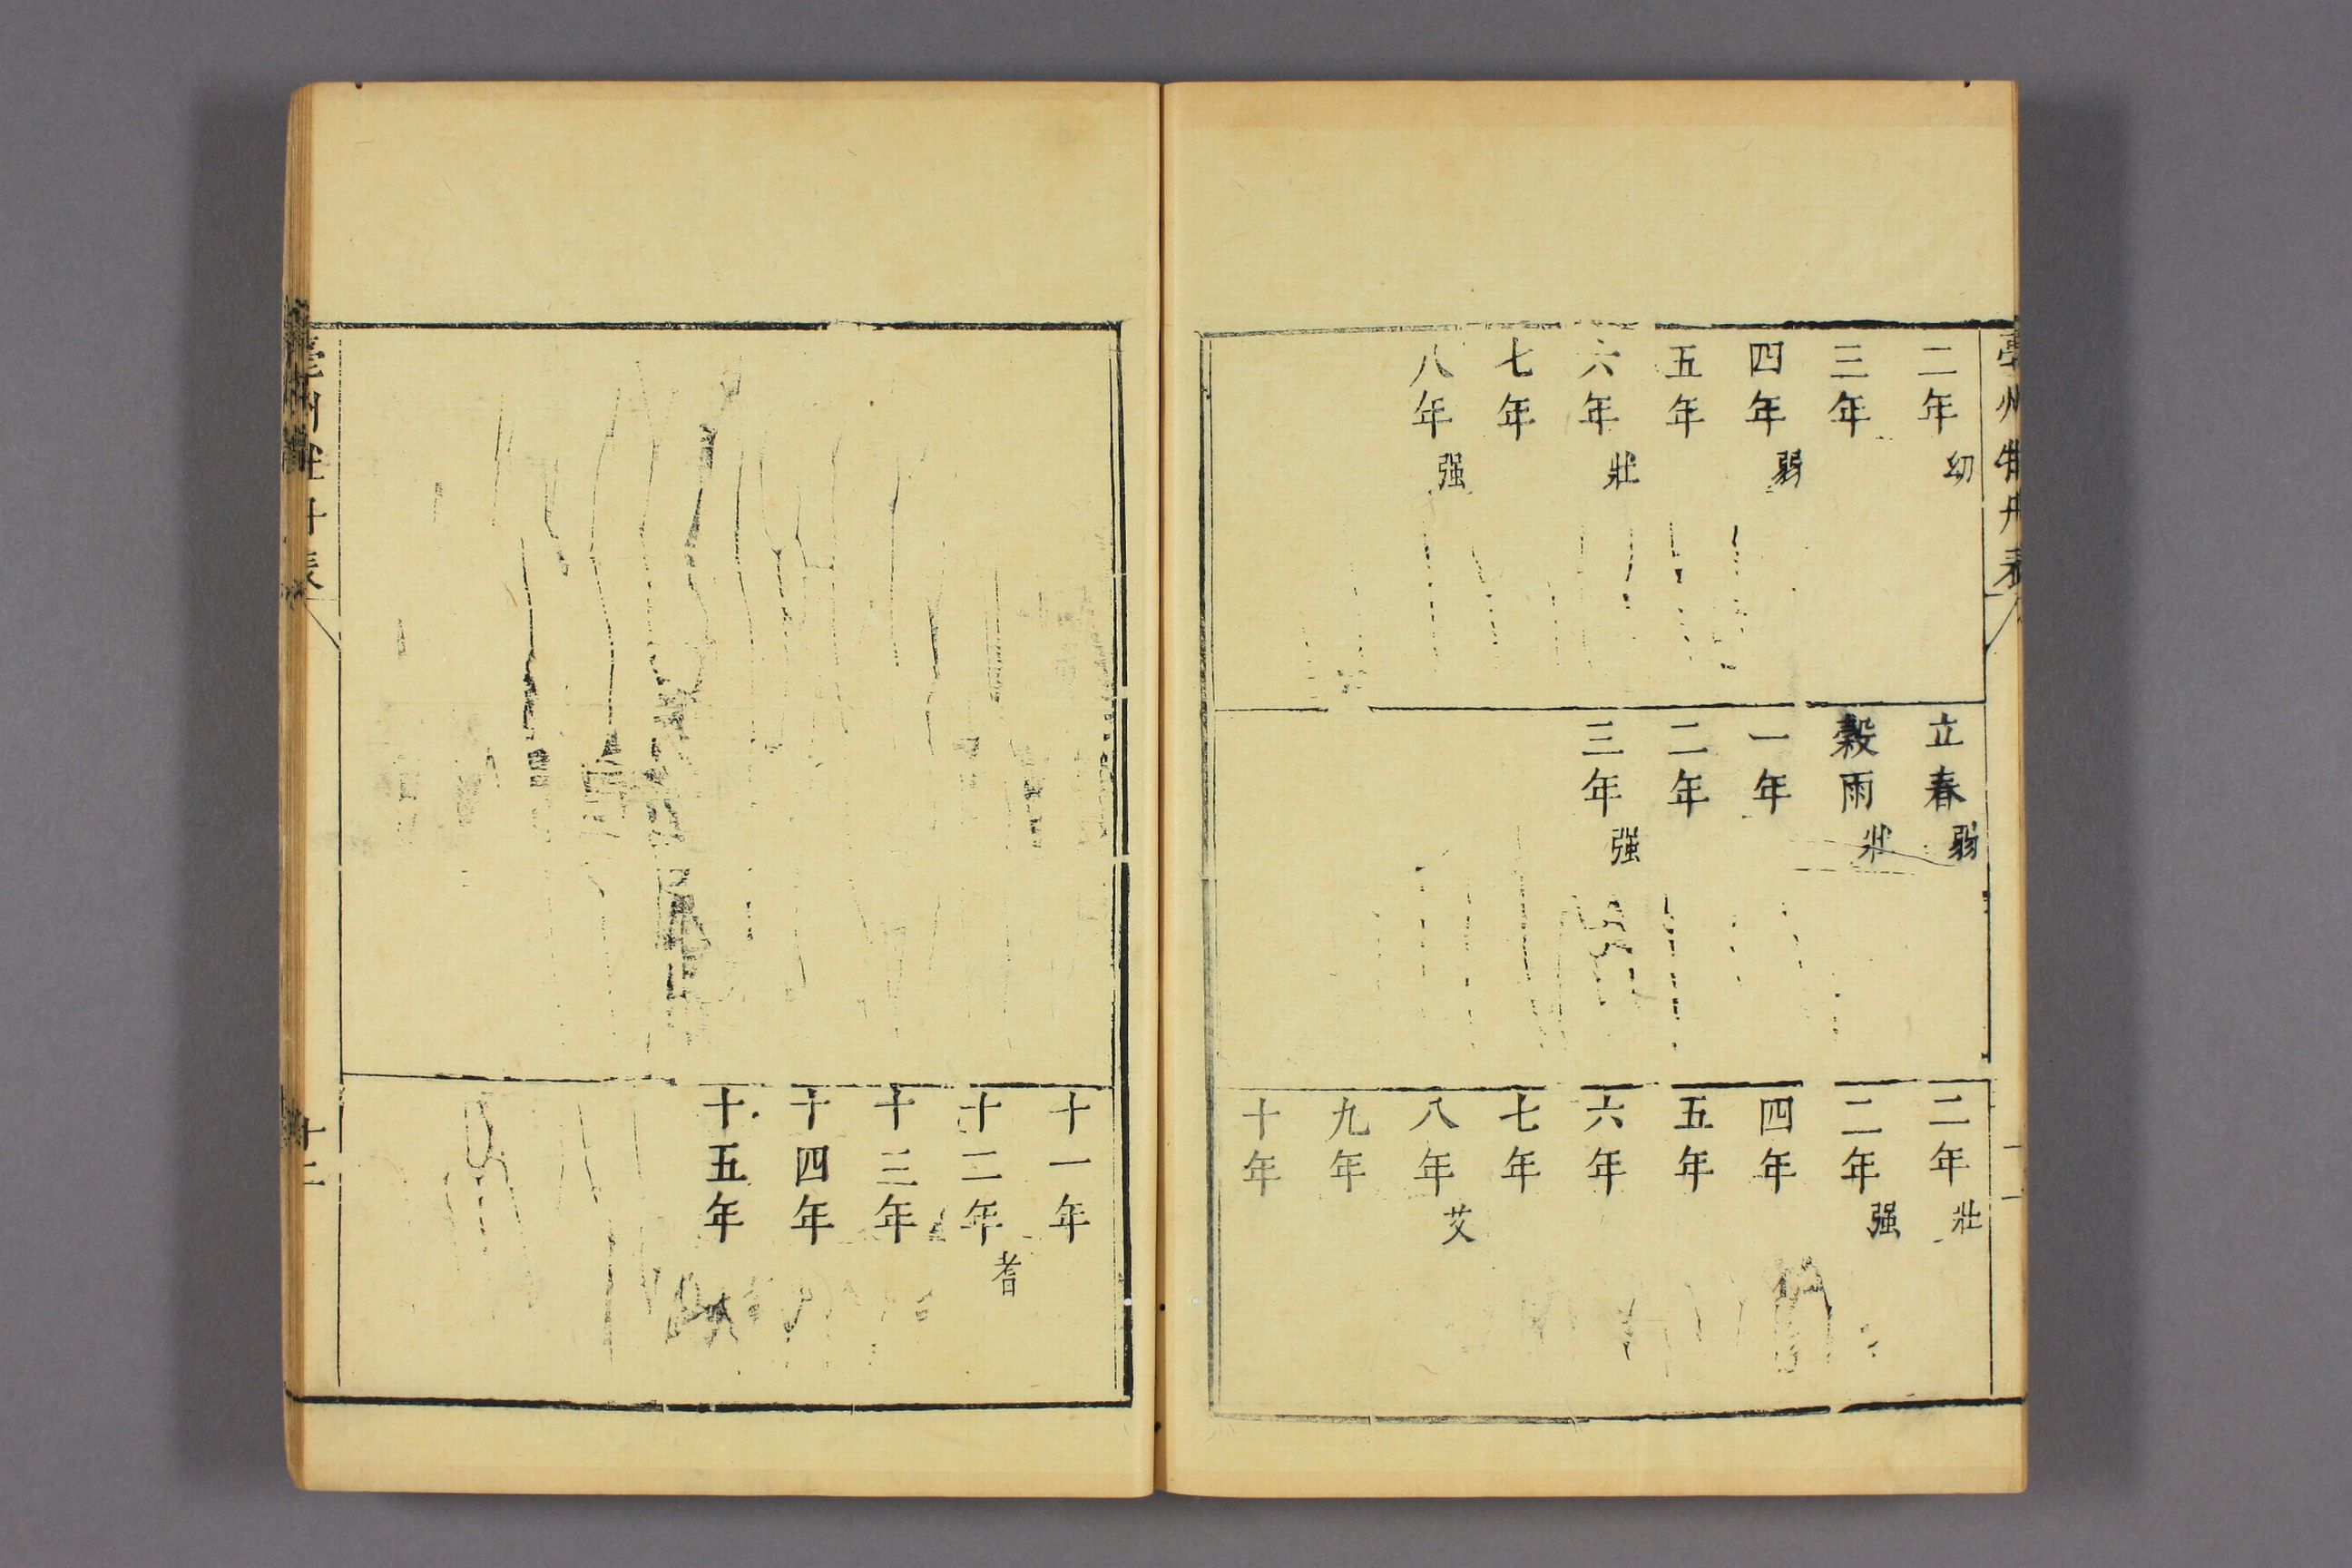 亳州牡丹表
二年 幼
三年
四年 弱
五年
六年 壯
七年
八年 强
立春 弱
穀雨 壯
一年
二年
三年 强
二年 壯
二年 强
四年
五年
六年
七年
八年 艾
九年
十年
十一年
十二年 耆
十三年
十四年
十五年